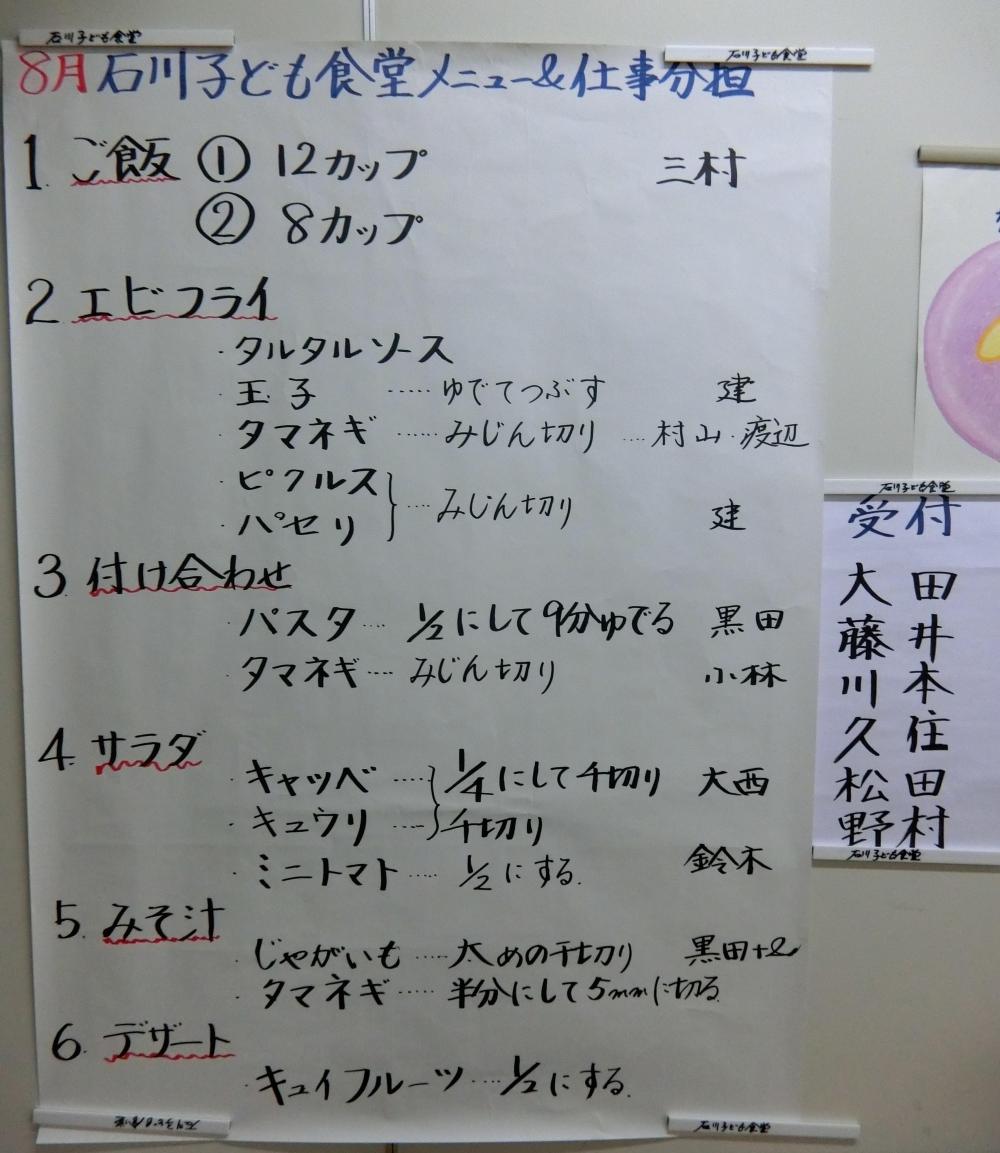 石川子ども食堂
石川子ども食堂
8月石川子ども食堂メニュー&仕事分担
1. ご飯 ① 12カップ 三村
② 8カップ
2 エビフライ
・タルタルソース
・玉子 ……ゆでてつぶす 建
・タマネギ ……みじん切り …村山・渡辺
・ピクルス
・パセリ } …みじん切り 建
3. 付け合わせ
・パスタ … 1/2にして9分ゆでる 黒田
・タマネギ… みじん切り 小林
4. サラダ
・キャッベ ……1/4にして千切り 大西
・キュウリ ……千切り
・ミニトマト …… 1/2にする. 鈴木
5. みそ汁
・じゃがいも ……太めの千切り 黒田
・タマネギ …… 半分にして5mmに切る
6. デザート
・キュイフルーツ …1/2にする.
石川子ども食堂
石川子ども食堂
受付
大田
藤井
川本
久住
松田
野村
石川子ども食堂